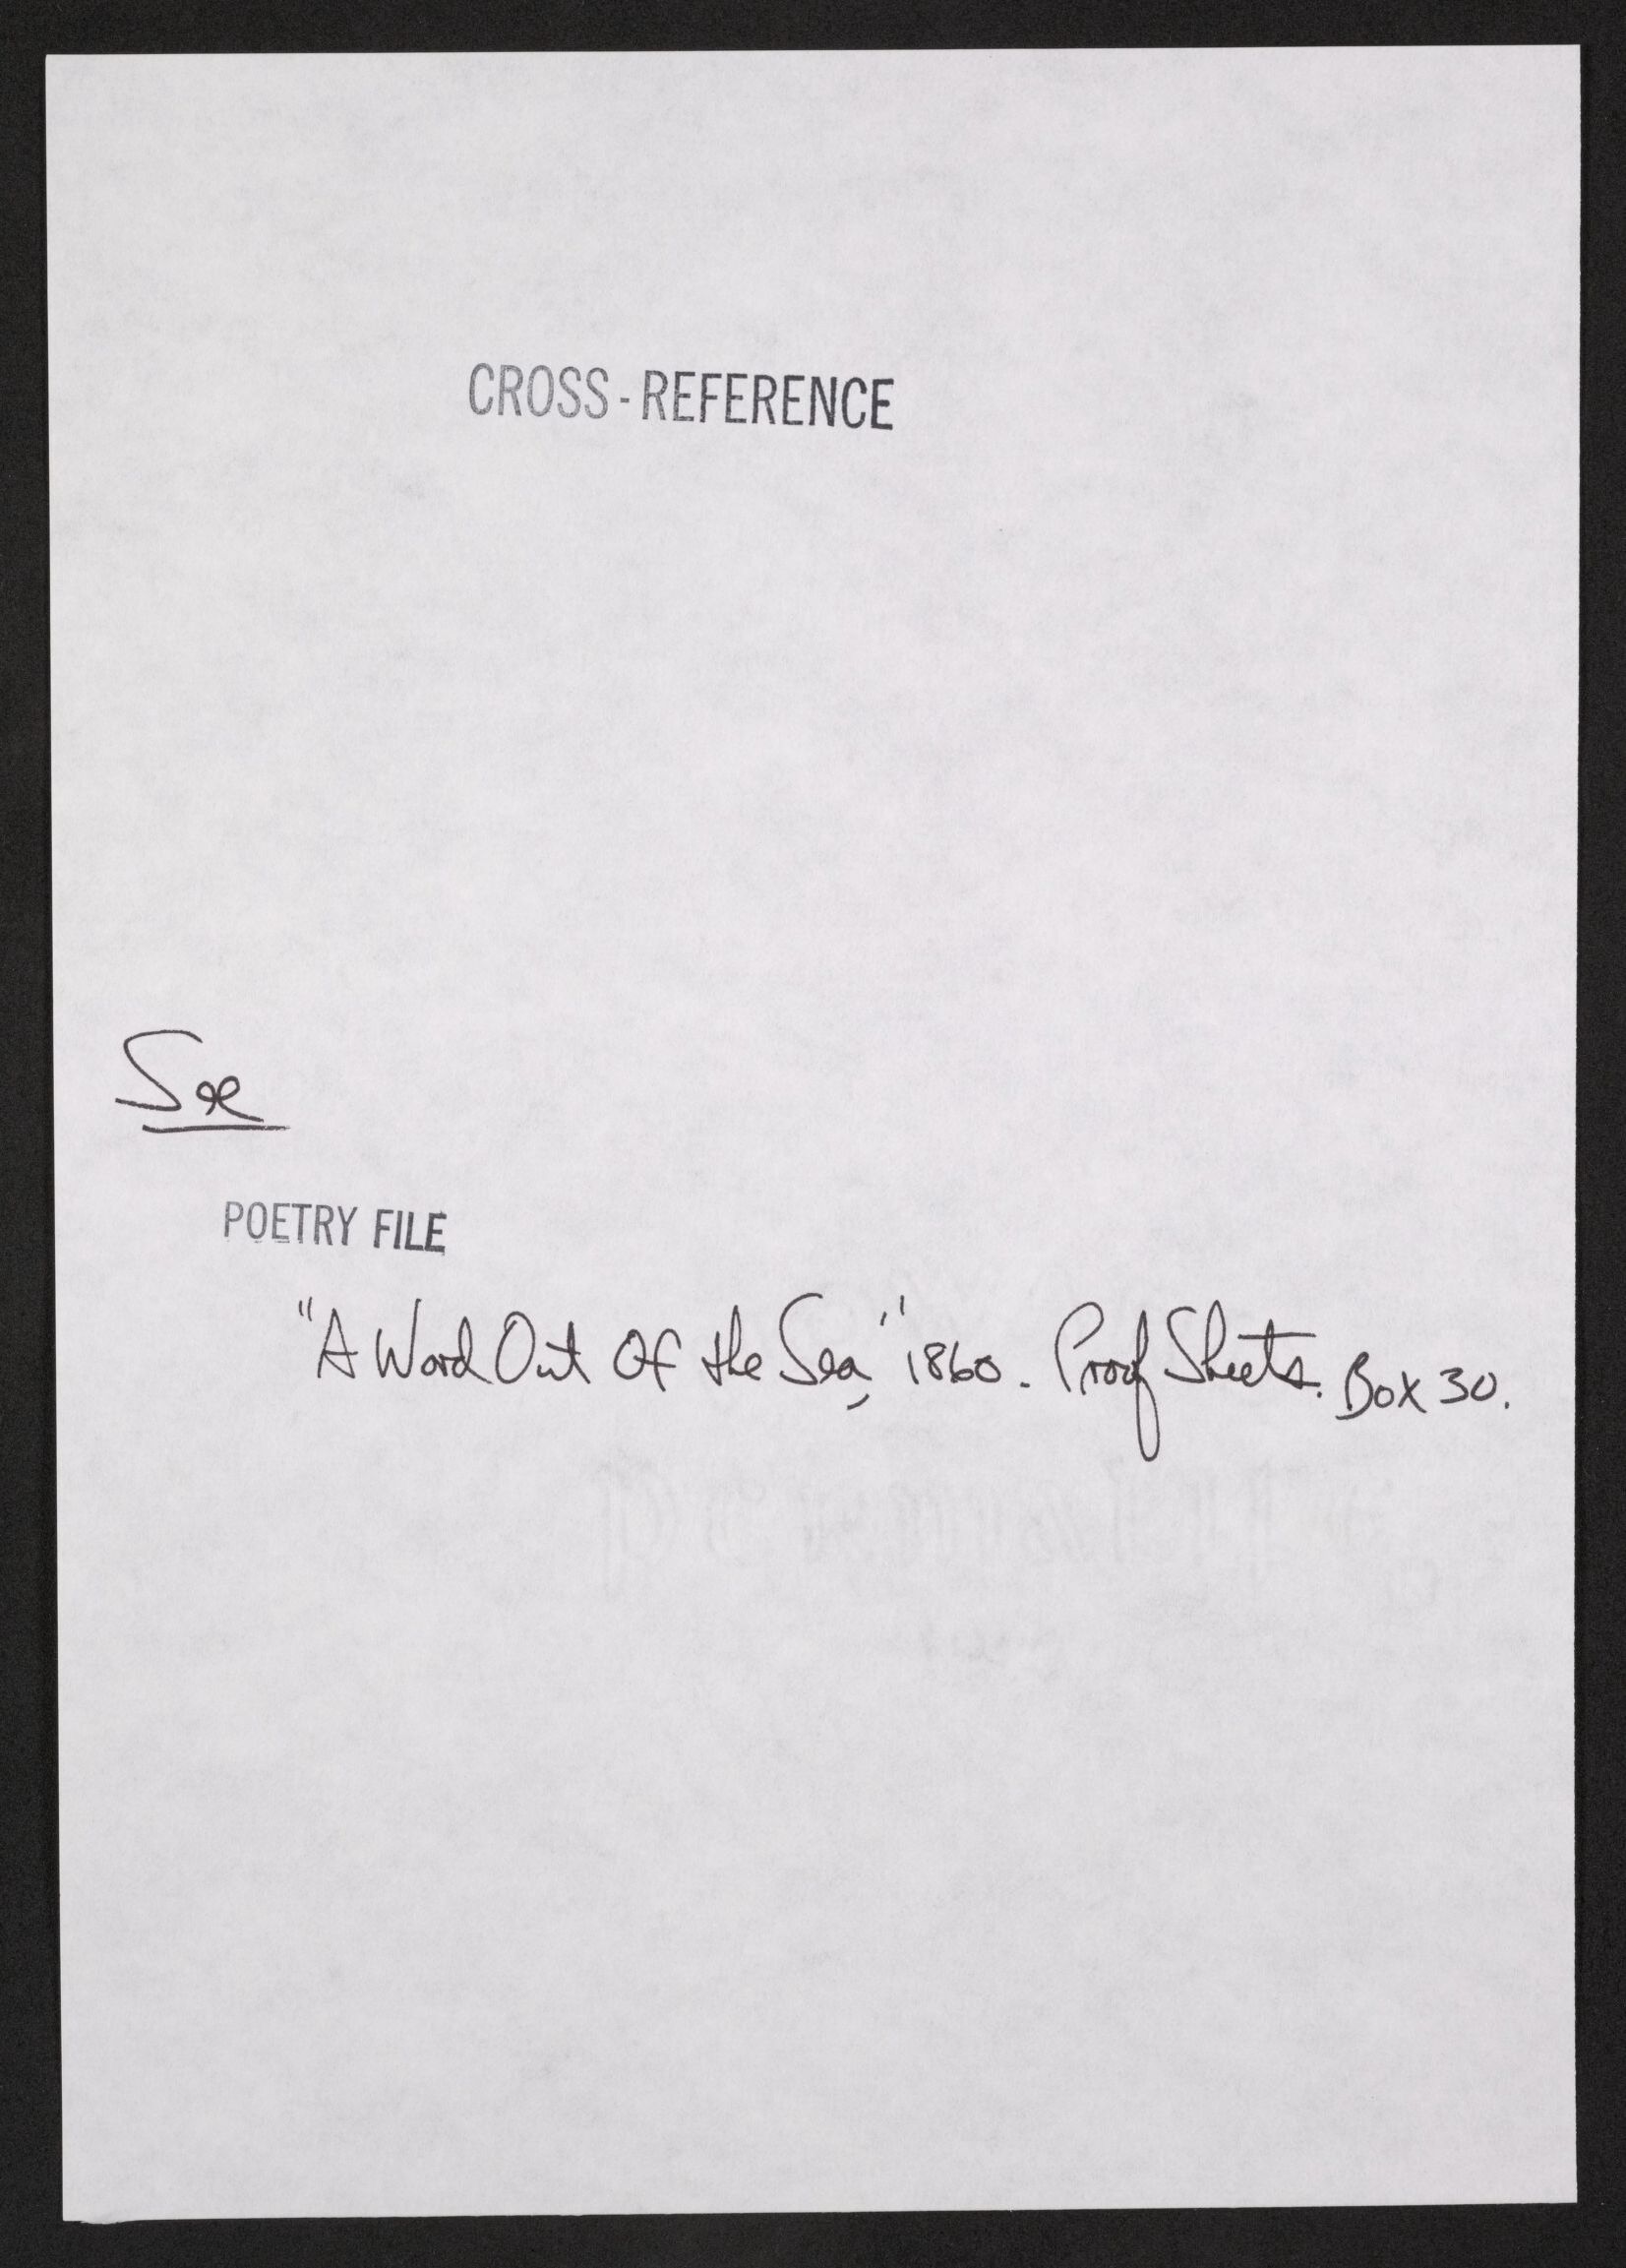 CROSS-REFERENCE
See
POETRY FILE
"A Word Out Of the Sea," 1860. Proof Sheets. Box 30.